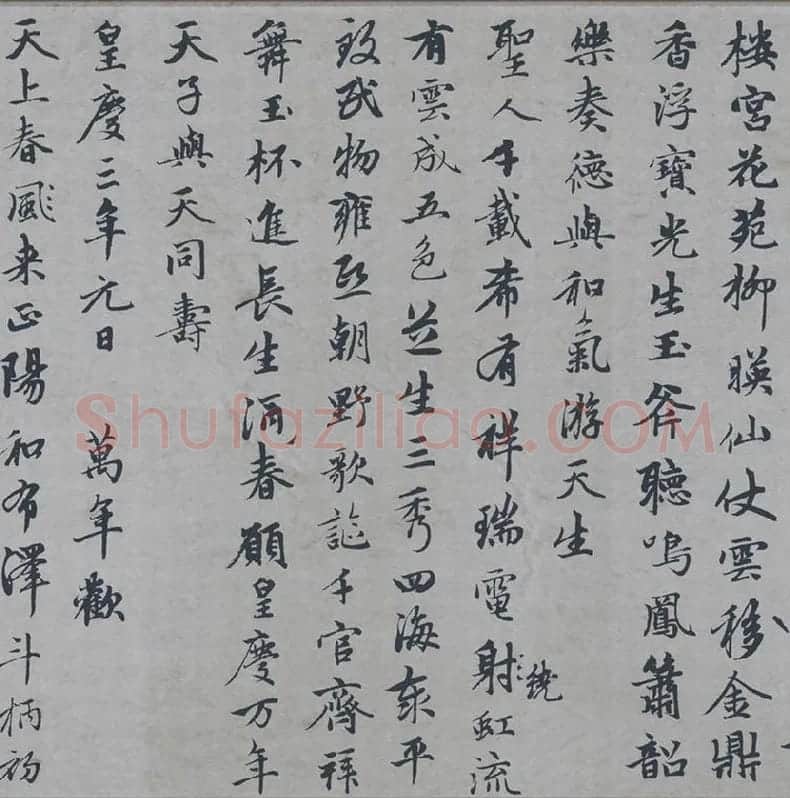 楼宫花苑柳暎仙仗雲移金鼎
香浮寶光生玉斧聴鳴鳳簫韶
樂奏德與和氣游天生
聖人千載希有祥瑞電射虹流
繞
有雲成五色芝生三秀四海泰平
致民物雍熙朝野歌謳千官齊拜
舞玉杯進長生酒春願皇慶万年
天子與天同壽
皇慶三年元日 萬年歡
天上春風来正陽和布澤斗柄初
Shufaziliao.COM